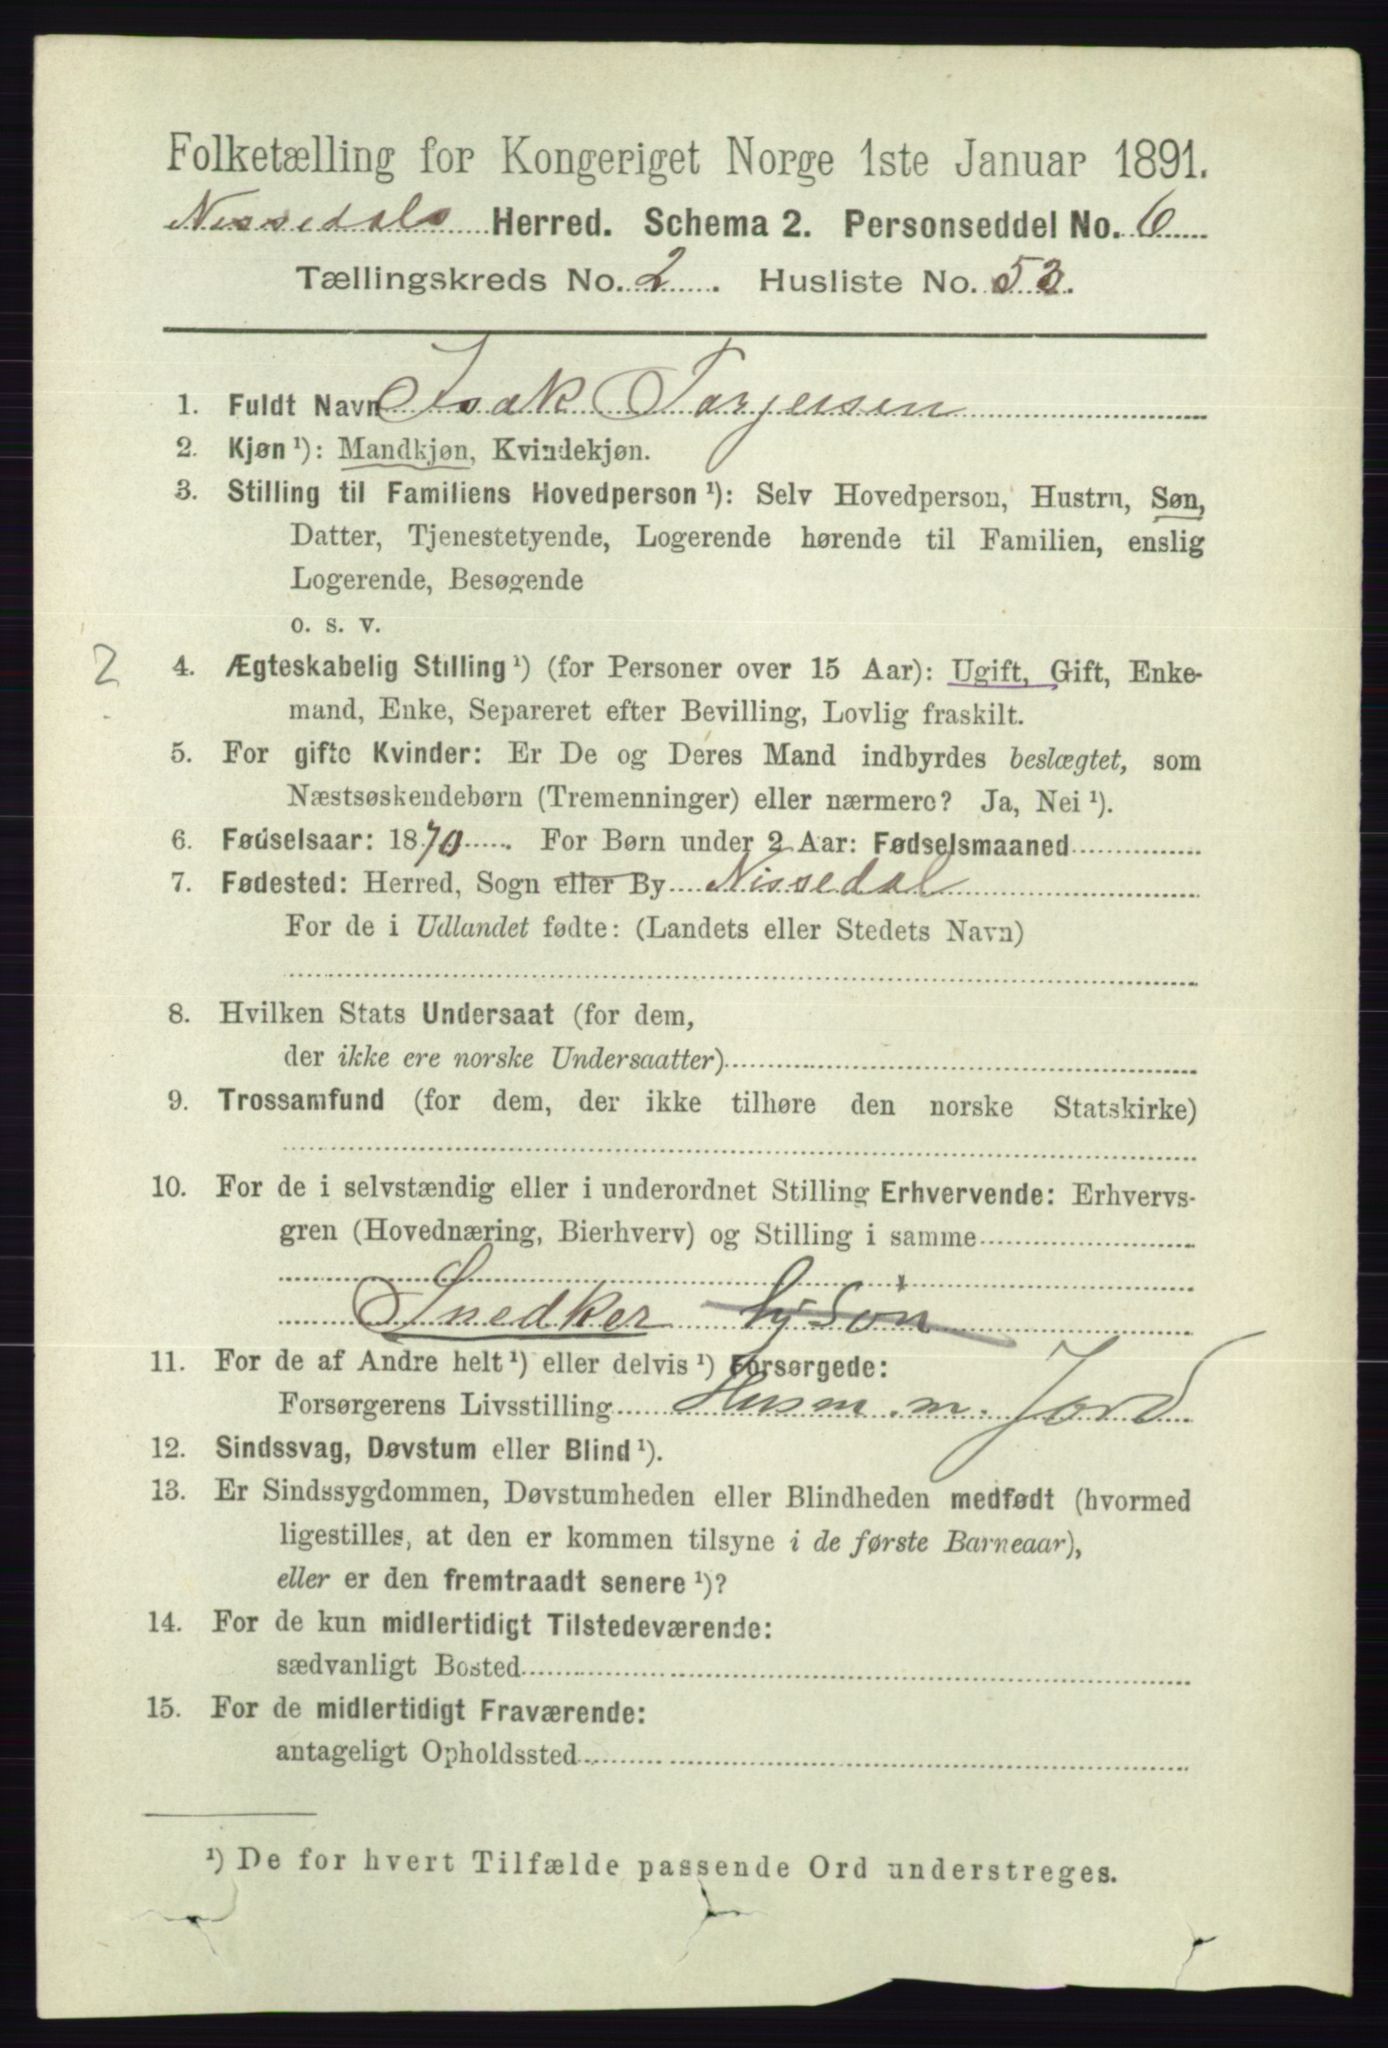 Folketælling for Kongeriget Norge 1ste Januar 1891.
Nissedals Herred. Schema 2. Personseddel No. 6
Tællingskreds No. 2. Husliste No. 53.
1. Fuldt Navn Isak Tarjersen
2. Kjøn ¹): Mandkjøn, Kvindekjøn.
3. Stilling til Familiens Hovedperson ¹): Selv Hovedperson, Hustru, Søn,
Datter, Tjenestetyende, Logerende hørende til Familien, enslig
Logerende, Besøgende
o. s. v.
2
4. Ægteskabelig Stilling ¹) (for Personer over 15 Aar): Ugift, Gift, Enke-
mand, Enke, Separeret efter Bevilling, Lovlig fraskilt.
5. For gifte Kvinder: Er De og Deres Mand indbyrdes beslægtet, som
Næstsøskendebørn (Tremenninger) eller nærmere? Ja, Nei ¹).
6. Fødselsaar: 1870. For Børn under 2 Aar: Fødselsmaaned
7. Fødested: Herred, Sogn eller By Nissedal
For de i Udlandet fødte: (Landets eller Stedets Navn)
8. Hvilken Stats Undersaat (for dem,
der ikke ere norske Undersaatter)
9. Trossamfund (for dem, der ikke tilhøre den norske Statskirke)
10. For de i selvstændig eller i underordnet Stilling Erhvervende: Erhvervs-
gren (Hovednæring, Bierhverv) og Stilling i samme
Snedker hj Søn
11. For de af Andre helt ¹) eller delvis ¹) Forsørgede:
Forsørgerens Livsstilling Husm. m. Jord
12. Sindssvag, Døvstum eller Blind ¹).
13. Er Sindssygdommen, Døvstumheden eller Blindheden medfødt (hvormed
ligestilles, at den er kommen tilsyne i de første Barneaar),
eller er den fremtraadt senere ¹)?
14. For de kun midlertidigt Tilstedeværende:
sædvanligt Bosted
15. For de midlertidigt Fraværende:
antageligt Opholdssted
¹) De for hvert Tilfælde passende Ord understreges.